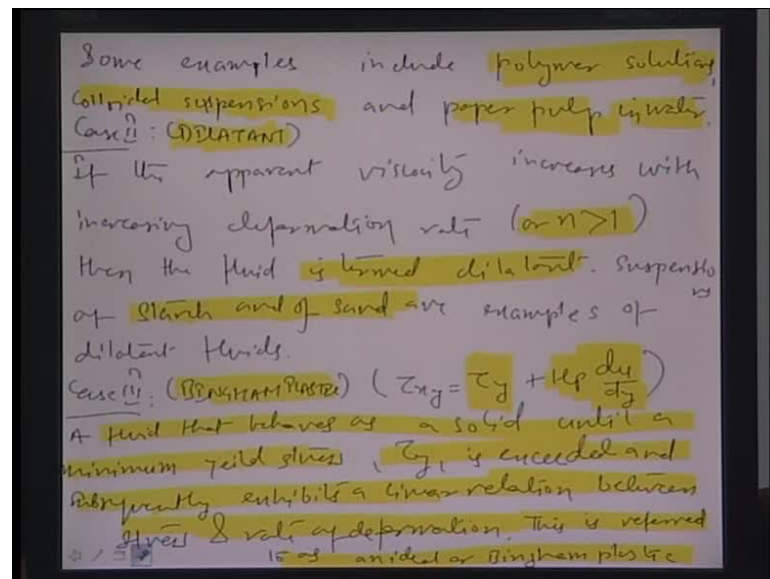 Some examples include polymer solutions,
colloidal suspensions and paper pulp in water.
Case II: (DILATANT)
If the apparent viscosity increases with
increasing deformation rate (or n>1)
then the fluid is termed dilatant. Suspensions
of starch and of sand are examples of
dilatant fluids.
Case III: (BINGHAM PLASTIC) (τxy = τy + μp du/dy)
A fluid that behaves as a solid until a
minimum yeild stress, τy, is exceeded and
subsequently exhibits a linear relation between
stress & rate of deformation. This is referred
to as an ideal or Bingham plastic